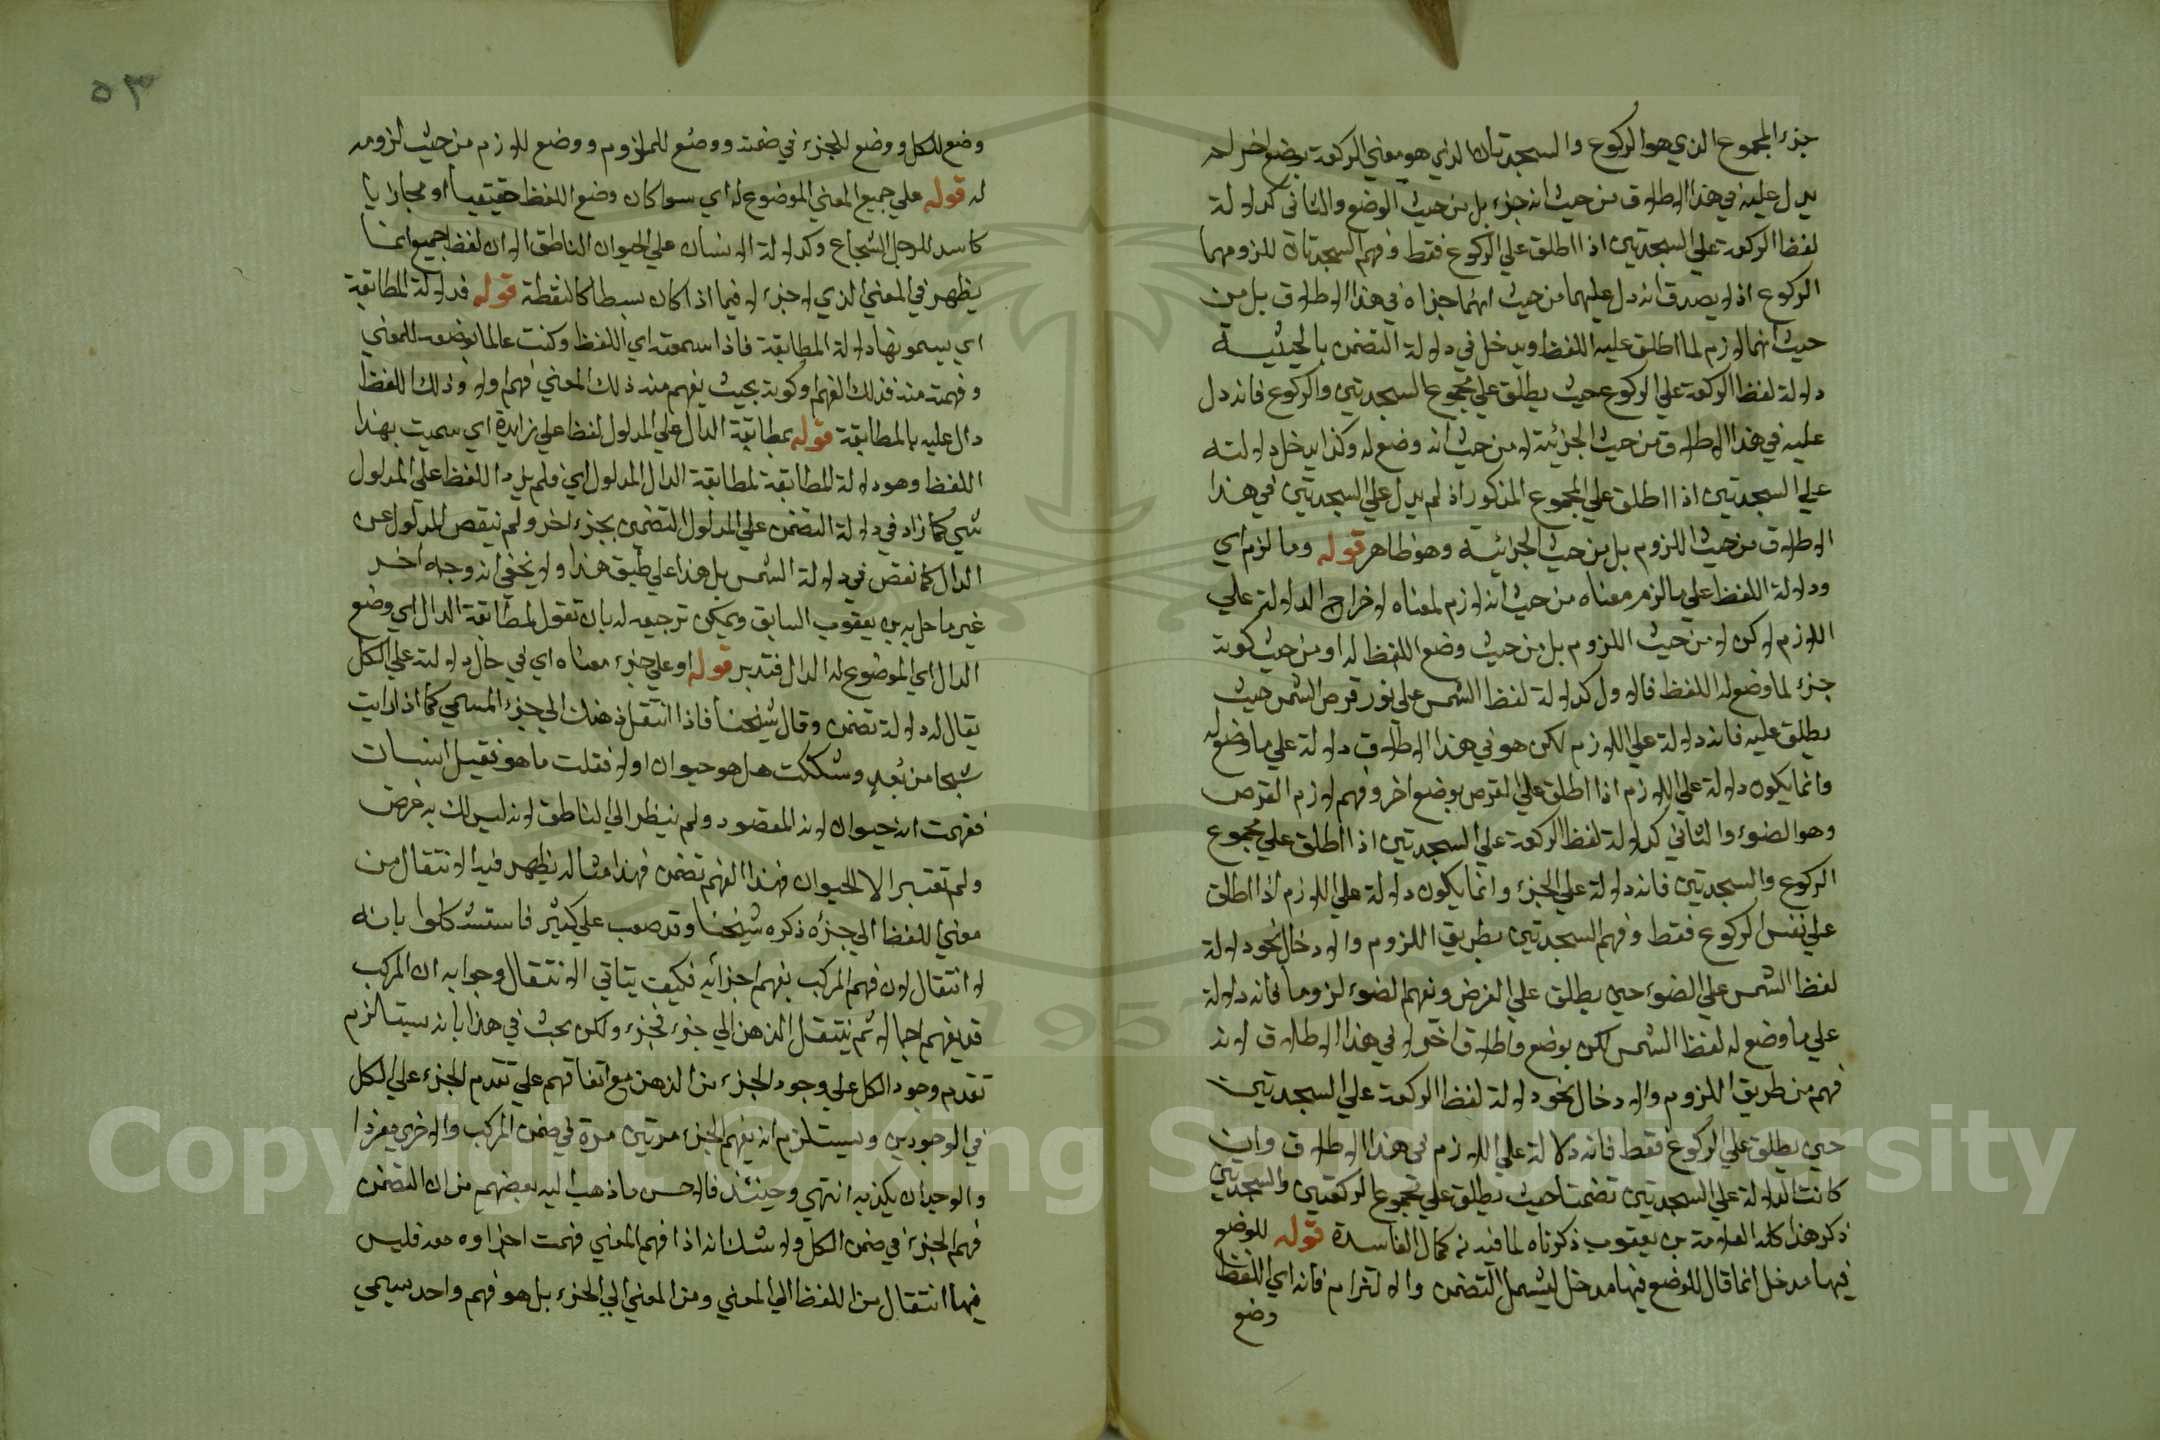 جزء المجموع الذي هو الركوع والسجدتان الذي هو معني الركعة بوضع اخر لم
يدل عليه في هذا الاطلاق من حيث انه جزء بل من حيث الوضع والثاني كدلالة
لفظ الركعة علي السجدتين اذا اطلق علي الركوع فقط وفهم السجدتان للزومهما
الركوع اذ لا يصدق انه دل عليهما من حيث انهما جزاه في هذا الاطلاق بل من
حيث انهما لازم لما اطلق عليه اللفظ ويدخل في دلالة التضمن بالحيثية
دلالة لفظ الركعة علي الركوع حيث يطلق علي مجموع السجدتين والركوع فانه دل
عليه في هذا الاطلاق من حيث الجزئية لا من حيث انه وضع له وكذا يدخل دلالته
علي السجدتين اذا اطلق علي المجموع المذكور اذ لم يدل علي السجدتين في هذا
الاطلاق من حيث اللزوم بل من حيث الجزائية وهو ظاهر قوله وما لزم اي
ودلالة اللفظ علي ما لزم معناه من حيث انه لازم لمعناه لاخراج الدلالة علي
اللازم لاكن لا من حيث اللزوم بل من حيث وضع اللفظ له او من حيث كونه
جزء لما وضع له اللفظ فالاول كدلالة لفظ الشمس علي نور قرص الشمس حيث
يطلق عليه فانه دلالة علي اللازم لكن هو في هذا الاطلاق دلالة علي ما وضع له
وانما يكون دلالة علي اللازم اذا اطلق علي القرص بوضع اخر وفهم لازم القرص
وهو الضوء والثاني كدلالة لفظ الركعة علي السجدتين اذا اطلق علي مجموع
الركوع والسجدتين فانه دلالة علي الجزء وانما يكون دلالة علي اللازم اذا اطلق
علي نفس الركوع فقط وفهم السجدتين بطريق اللزوم والادخال نحو دلالة
لفظ الشمس علي الضوء حين يطلق علي القرص ويفهم الضوء لزوما فانه دلالة
علي ما وضع له لفظ الشمس لكن بوضع واطلاق اخر لا في هذا الاطلاق لانه
فهم من طريق اللزوم والادخال نحو دلالة لفظ الركعة علي السجدتين
حين يطلق علي الركوع فقط فانه دلالة علي اللازم في هذا الاطلاق وان
كانت الدلالة علي السجدتين تضمنا حيث يطلق علي مجموع الركعتين والسجدتين
ذكر هذا كله العلامة بن يعقوب ذكرناه لما فيه من كمال الفاسدة قوله للوضع
فيها مدخل انما قال للوضع فيها مدخل ليشمل التضمن والالتزام فانه اي اللفظ
وضع
٥٣
وضع للكل ووضع للجزء في ضمنه ووضع للملزوم ووضع للازم من حيث لزومه
له قوله علي جميع المعني الموضوع له اي سوا كان وضع اللفظ حقيقيا او مجازيا
كاسد للرجل الشجاع وكدلالة الانسان علي الحيوان الناطق الا ان لفظ جميع انما
يظهر في المعني الذي له جزء لا فيما اذا كان بسيطا كالنقطة قوله فدلالة المطابقة
اي يسمونها دلالة المطابقة فاذا سمعته اي اللفظ وكنت عالما بوضعه للمعني
وفهمته منه فذلك الفهم او كونه بحيث يفهم منه ذلك المعني فهم اولا وذلك اللفظ
دال عليه بالمطابقة قوله بمطابقة الدال علي المدلول لفظ علي زايدة اي سميت بهذا
اللفظ وهو دلالة المطابقة لمطابقة الدال المدلول اي فلم يزد اللفظ علي المدلول
شي كما زاد في دلالة التضمن علي المدلول التضمني بجزء اخر ولم ينقص المدلول عن
الدال كما نقص في دلالة الشمس بل هذا علي طبق هذا ولا يخفي انه وجه اخر
غير ما حل به بن يعقوب السابق ويمكن ترجيعه له بان تقول لمطابقة الدال اي وضع
الدال اي الموضوع له الدال فتدبر قوله او علي جزء معناه اي في حال دلالته علي الكل
يقال له دلالة تضمن وقال شيخنا فاذا انتقل ذهنك الي جزء المسمي كما اذا رايت
شبحا من بعد وشككت هل هو حيوان اولا فقلت ما هو فقيل انسان
ففهمت انه حيوان لانه المقصود ولم ينظر الي الناطق لانه ليس لك به غرض
ولم تعتبر الا الحيوان فهذا الفهم تضمن فهذا مثاله يظهر فيه الانتقال من
معني اللفظ الي جزءه ذكره شيخنا وقد صعب علي كثير فاستشكلوا بانه
لا انتقال لان فهم المركب بفهم اجزائه فكيف يتاتي الانتقال وجوابه ان المركب
قد يفهم اجمالا ثم ينتقل الذهن الي جزء فجزء ولكن بحث في هذا بانه يستلزم
تقدم وجود الكل علي وجود الجزء من الذهن مع اتفاقهم علي تقدم الجزء علي الكل
في الوجودين ويستلزم انه يفهم الجزء مرتين مرة في ضمن المركب والاخري مفردا
والوجدان يكذبه انتهي وحينئذ فالاحسن ما ذهب اليه بعضهم من ان التضمن
فهم الجزء في ضمن الكل ولا شك انه اذا فهم المعني فهمت اجزاوه معه فليس
فيها انتقال من اللفظ الي المعني ومن المعني الي الجزء بل هو فهم واحد سيمي
Copyright © King Saud University
1957